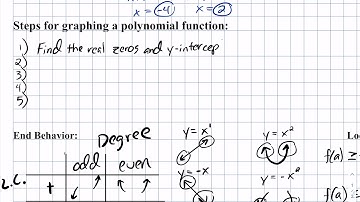 x = -4 x = 2
Steps for graphing a polynomial function:
1) Find the real zeros and y-intercep
2)
3)
4)
5)
End Behavior:
Degree
y = x¹
y = x²
Lo
odd even
f(a) ≥
L.C.
+
y = -x
y = -x²
f(a)